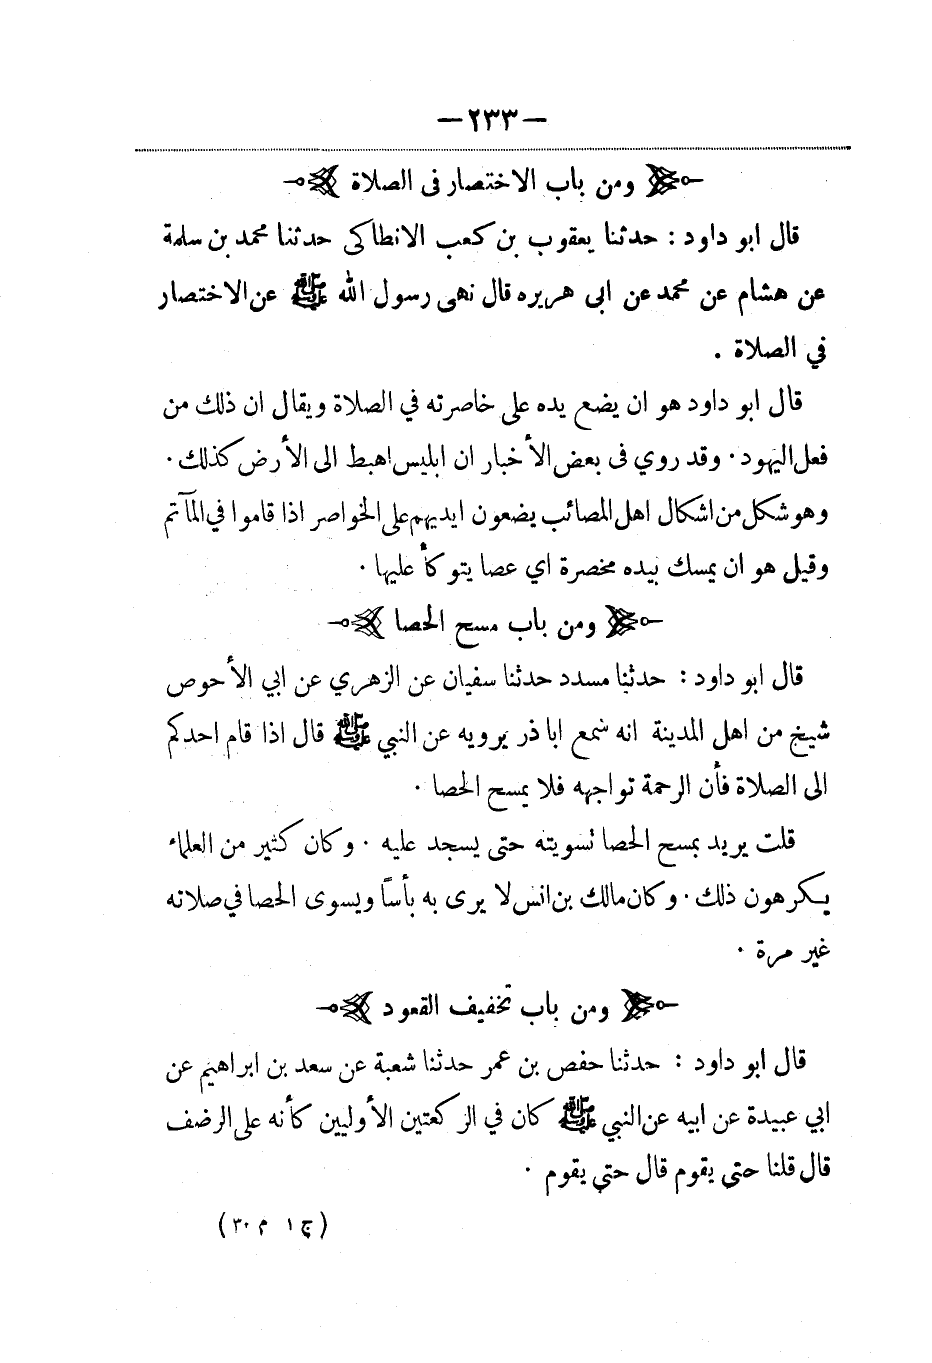 — ٢٣٣ —
ومن باب الاختصار فى الصلاة
قال ابو داود : حدثنا يعقوب بن كعب الانطاكى حدثنا محمد بن سلمة
عن هشام عن محمد عن ابى هريره قال نهى رسول الله ﷺ عن الاختصار
في الصلاة .
قال ابو داود هو ان يضع يده على خاصرته في الصلاة ويقال ان ذلك من
فعل اليهود . وقد روي فى بعض الأخبار ان ابليس اهبط الى الأرض كذلك .
وهو شكل من اشكال اهل المصائب يضعون ايديهم على الخواصر اذا قاموا في المآتم
وقيل هو ان يمسك بيده مخصرة اي عصا يتوكأ عليها .
ومن باب مسح الحصا
قال ابو داود : حدثنا مسدد حدثنا سفيان عن الزهري عن ابي الأحوص
شيخ من اهل المدينة انه سمع ابا ذر يرويه عن النبي ﷺ قال اذا قام احدكم
الى الصلاة فأن الرحمة تواجهه فلا يمسح الحصا .
قلت يريد بمسح الحصا تسويته حتى يسجد عليه . وكان كثير من العلماء
يكرهون ذلك . وكان مالك بن انس لا يرى به بأسًا ويسوى الحصا في صلاته
غير مرة .
ومن باب تخفيف القعود
قال ابو داود : حدثنا حفص بن عمر حدثنا شعبة عن سعد بن ابراهيم عن
ابي عبيدة عن ابيه عن النبي ﷺ كان في الركعتين الأوليين كأنه على الرضف
قال قلنا حتى يقوم قال حتى يقوم .
(ج ١ م ٣٠)